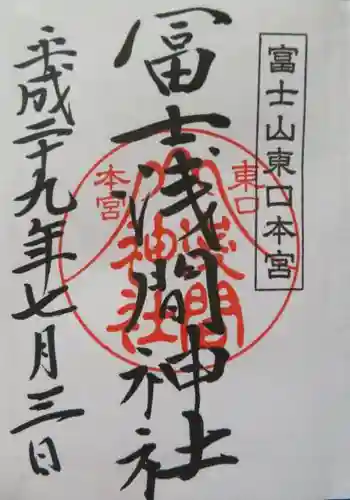 富士山東口本宮
冨士浅間神社
平成二十九年七月三日
東口
本宮
浅間
神社